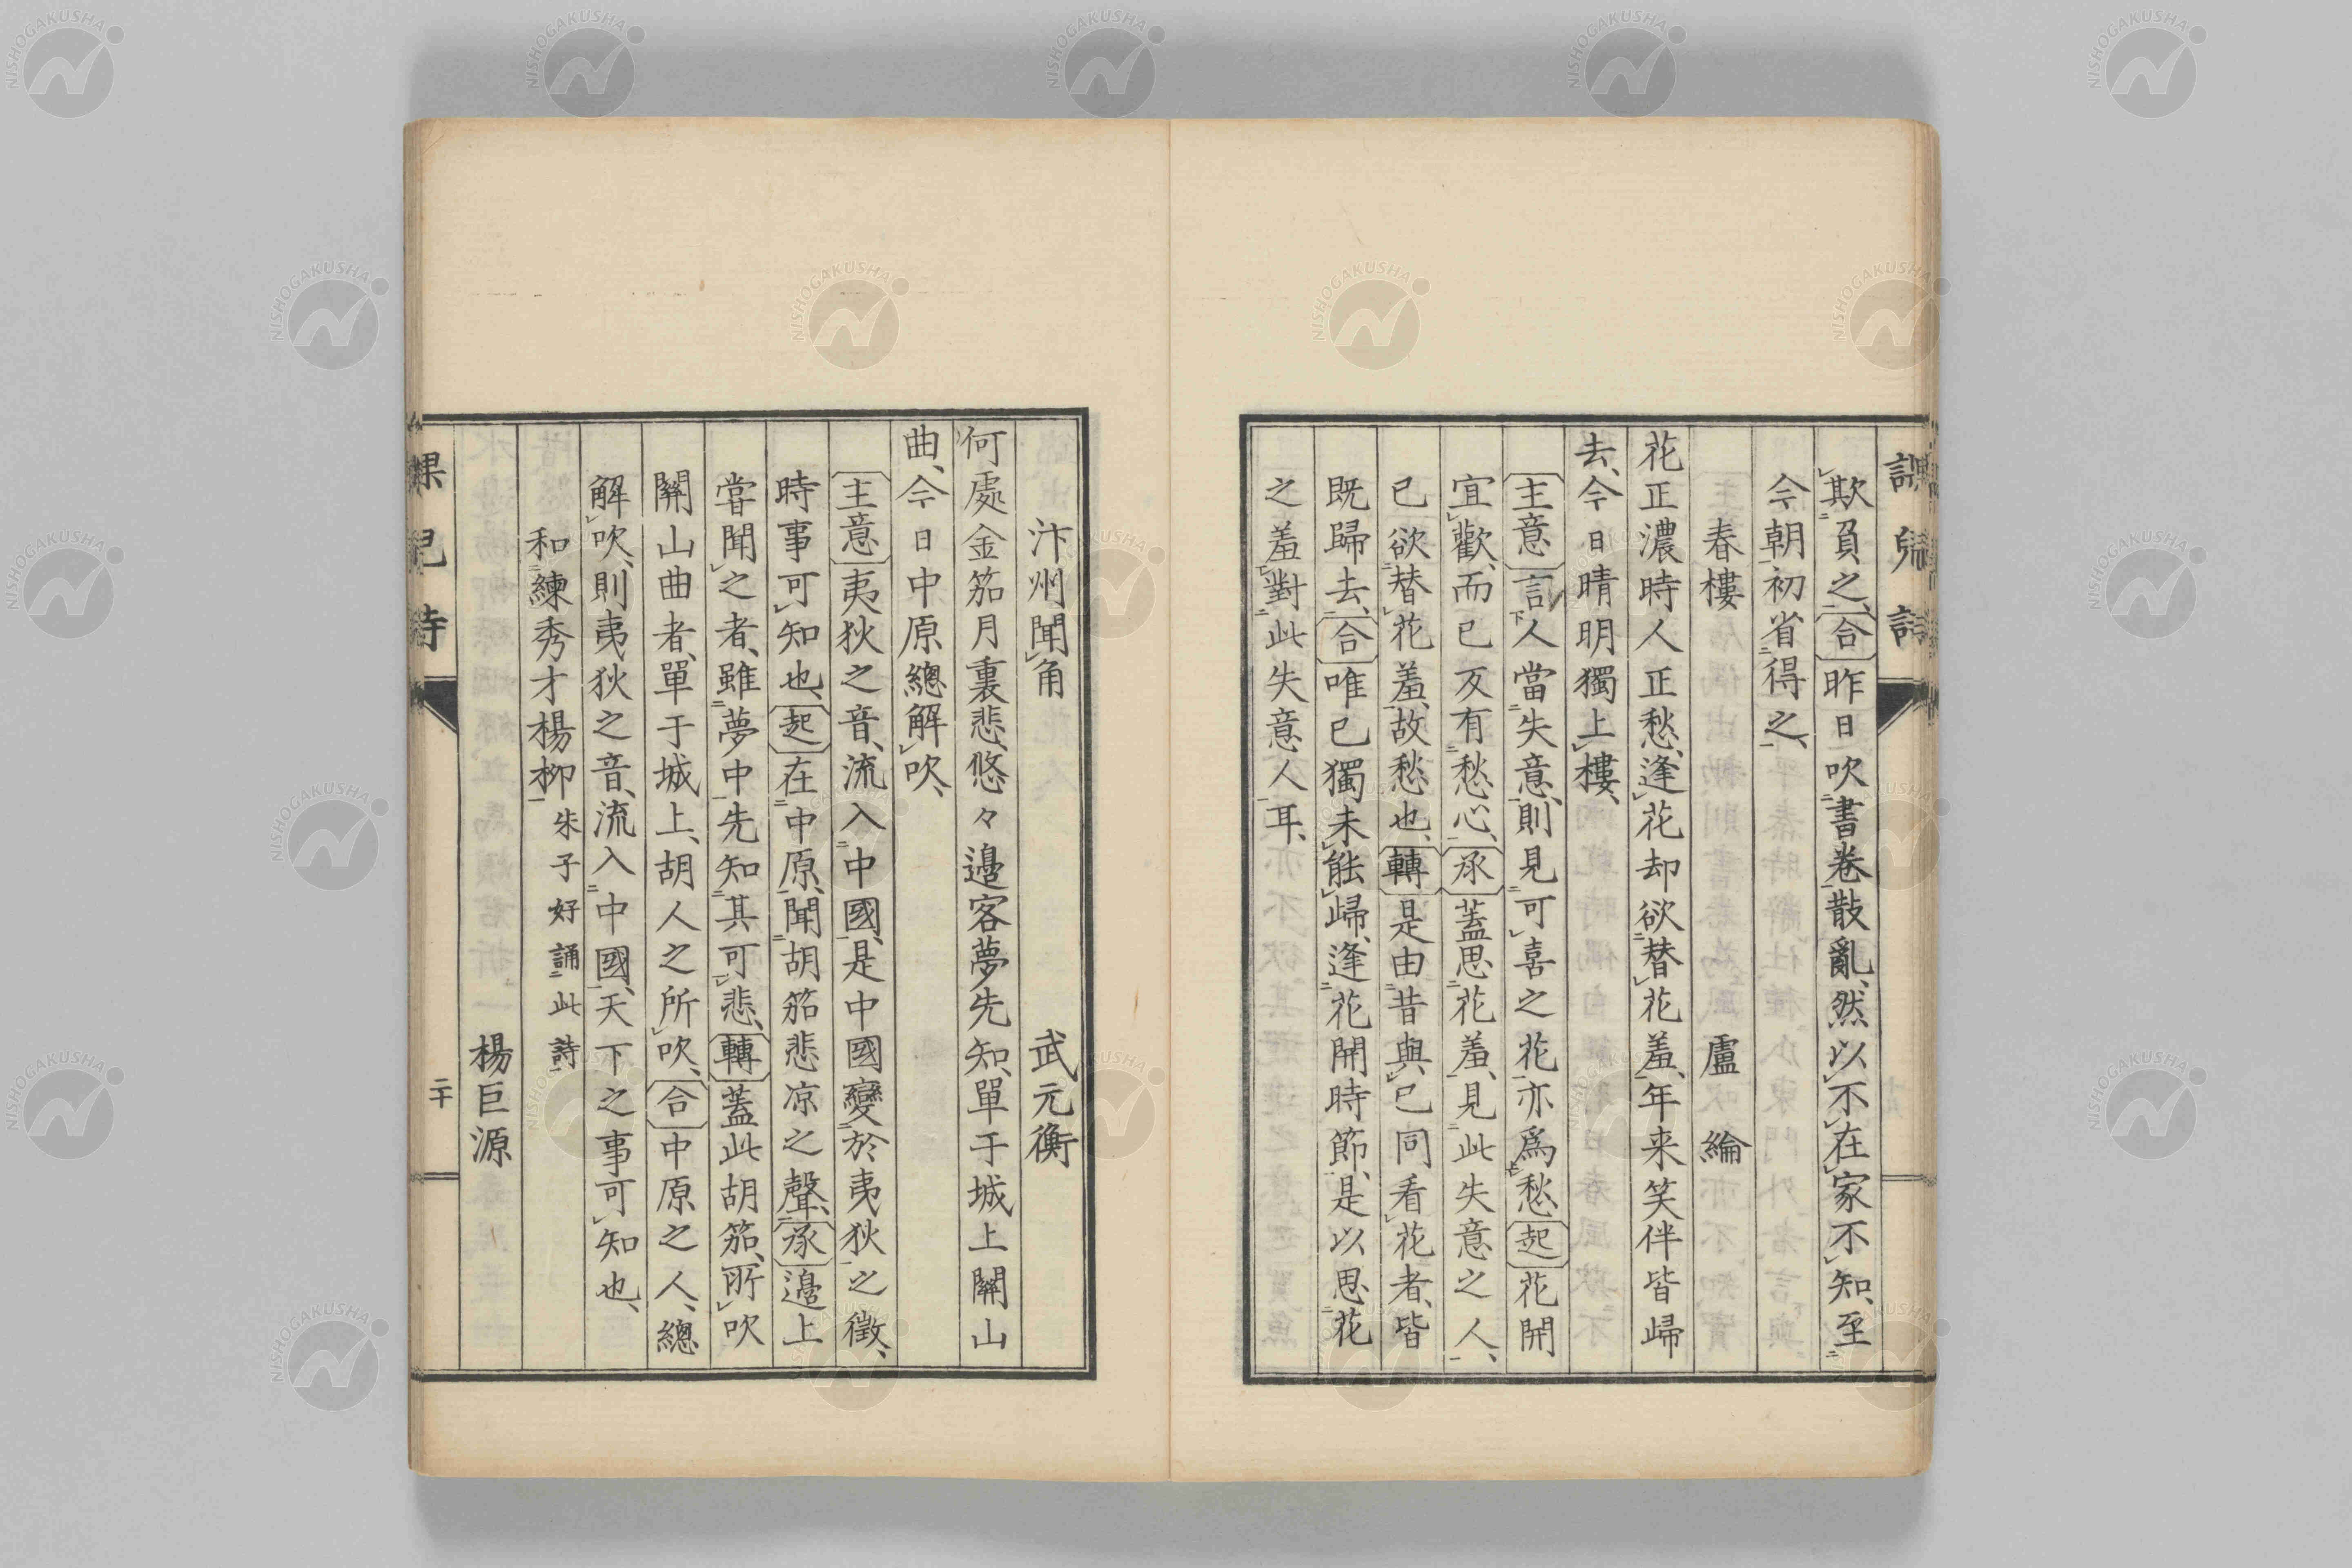 課兒詩
欺負之、合昨日吹書卷散亂、然以不在家不知、至
今朝初省得之、
春樓 盧綸
花正濃時人正愁、逢花却欲替花羞、年来笑伴皆歸
去、今日晴明獨上樓、
主意言人當失意、則見可喜之花亦爲愁起花開
宜歡、而已亥有愁心、承蓋思花羞、見此失意之人、
已欲替花羞、故愁也、轉是由昔與已同看花者、皆
既歸去、合唯已獨未能歸、逢花開時節、是以思花
之羞對此失意人耳、
汴州聞角 武元衡
何處金笳月裏悲、悠々邊客夢先知、單于城上關山
曲、今日中原總解吹、
主意夷狄之音、流入中國、是中國變於夷狄之徵、
時事可知也、起在中原、聞胡笳悲凉之聲、承邊上
嘗聞之者、雖夢中先知其可悲、轉蓋此胡笳、所吹
關山曲者、單于城上、胡人之所吹、合中原之人、總
解吹、則夷狄之音、流入中國、天下之事可知也、
和練秀才楊柳 朱子好誦此詩
楊巨源
課兒詩
二十